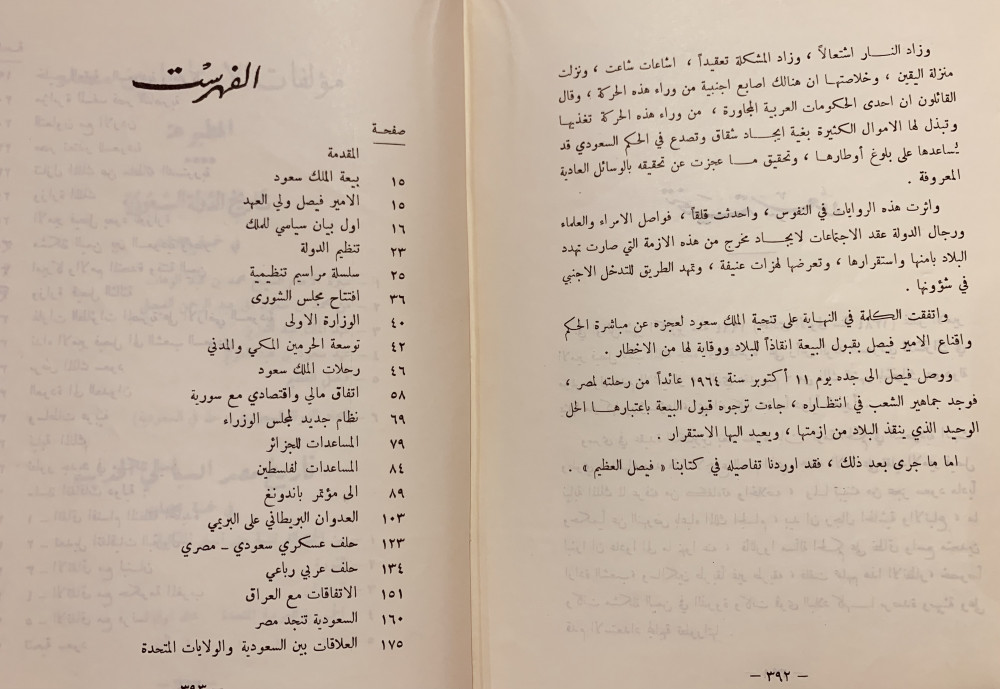 وزاد النـــار اشتعالاً ، وزاد المشكلة تعقيداً ، اشاعات شاعت ، ونزلت
منزلة اليقين ، وخلاصتها ان هنالك اصابع اجنبية من وراء هذه الحركة ، وقال
القائلون ان احدى الحكومات العربية المجاورة ، من وراء هذه الحركة تغذيهـا
وتبذل لها الاموال الكثيرة بغية ايجـاد شقاق وتصدع في الحكم السعودي قد
يُساعدها على بلوغ أوطارها ، وتحقيق مـا عجزت عن تحقيقه بالوسائل العادية
المعروفة .
واثرت هذه الروايات في النفوس ، واحدثت قلقاً ، فواصل الامراء والعلماء
ورجال الدولة عقد الاجتماعات لايجـاد مخرج من هذه الازمة التي صارت تهدد
البلاد بامنها واستقرارها ، وتعرضها لهزات عنيفة ، وتمهد الطريق للتدخل الاجنبي
في شؤونها .
واتفقت الكلمة في النهاية على تنحية الملك سعود لعجزه عن مباشرة الحكم
واقناع الامير فيصل بقبول البيعة انقاذاً للبلاد ووقاية لها من الاخطار .
ووصل فيصل الى جده يوم ١١ أكتوبر سنة ١٩٦٤ عائداً من رحلته لمصر ،
فوجد جماهير الشعب في انتظاره ، جاءت ترجوه قبول البيعة باعتبارهـا الحل
الوحيد الذي ينقذ البلاد من ازمتها ، ويعيد اليها الاستقرار .
اما ما جرى بعد ذلك ، فقد اوردنا تفاصيله في كتابنا « فيصل العظيم » .
— ٣٩٢ —
الفهرست
صفحة
المقدمة
١٥ بيعة الملك سعود
١٥ الامير فيصل ولي العهد
١٦ اول بيان سياسي للملك
٢٣ تنظيم الدولة
٢٥ سلسلة مراسيم تنظيمية
٣٦ افتتاح مجلس الشورى
٤٠ الوزارة الاولى
٤٢ توسعة الحرمين المكي والمدني
٤٦ رحلات الملك سعود
٥٨ اتفاق مالي واقتصادي مع سورية
٦٩ نظام جديد لمجلس الوزراء
٧٩ المساعدات للجزائر
٨٤ المساعدات لفلسطين
٨٩ الى مؤتمر باندونغ
١٠٣ العدوان البريطاني على البريمي
١٢٣ حلف عسكري سعودي - مصري
١٣٤ حلف عربي رباعي
١٥١ الاتفاقات مع العراق
١٦٠ السعودية تنجد مصر
١٧٥ العلاقات بين السعودية والولايات المتحدة
٣٩٣